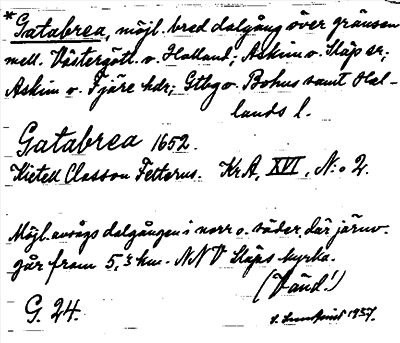 *Gatabrea, möjl. bred dalgång över gränsen
mell. Västergötl. o. Halland; Askim o. Släp sr;
Askim o. Fjäre hdr; Gtbg o. Bohus samt Hal-
lands l.
Gatabrea 1652.
Kietell Classon Felterus. Kr.A, XVI, N:o 2.
Möjl. avsågs dalgången i norr o. söder, där järnv.
går fram 5,3 km. NNV Släps kyrka.
(Vänd!)
G. 24.
1937.